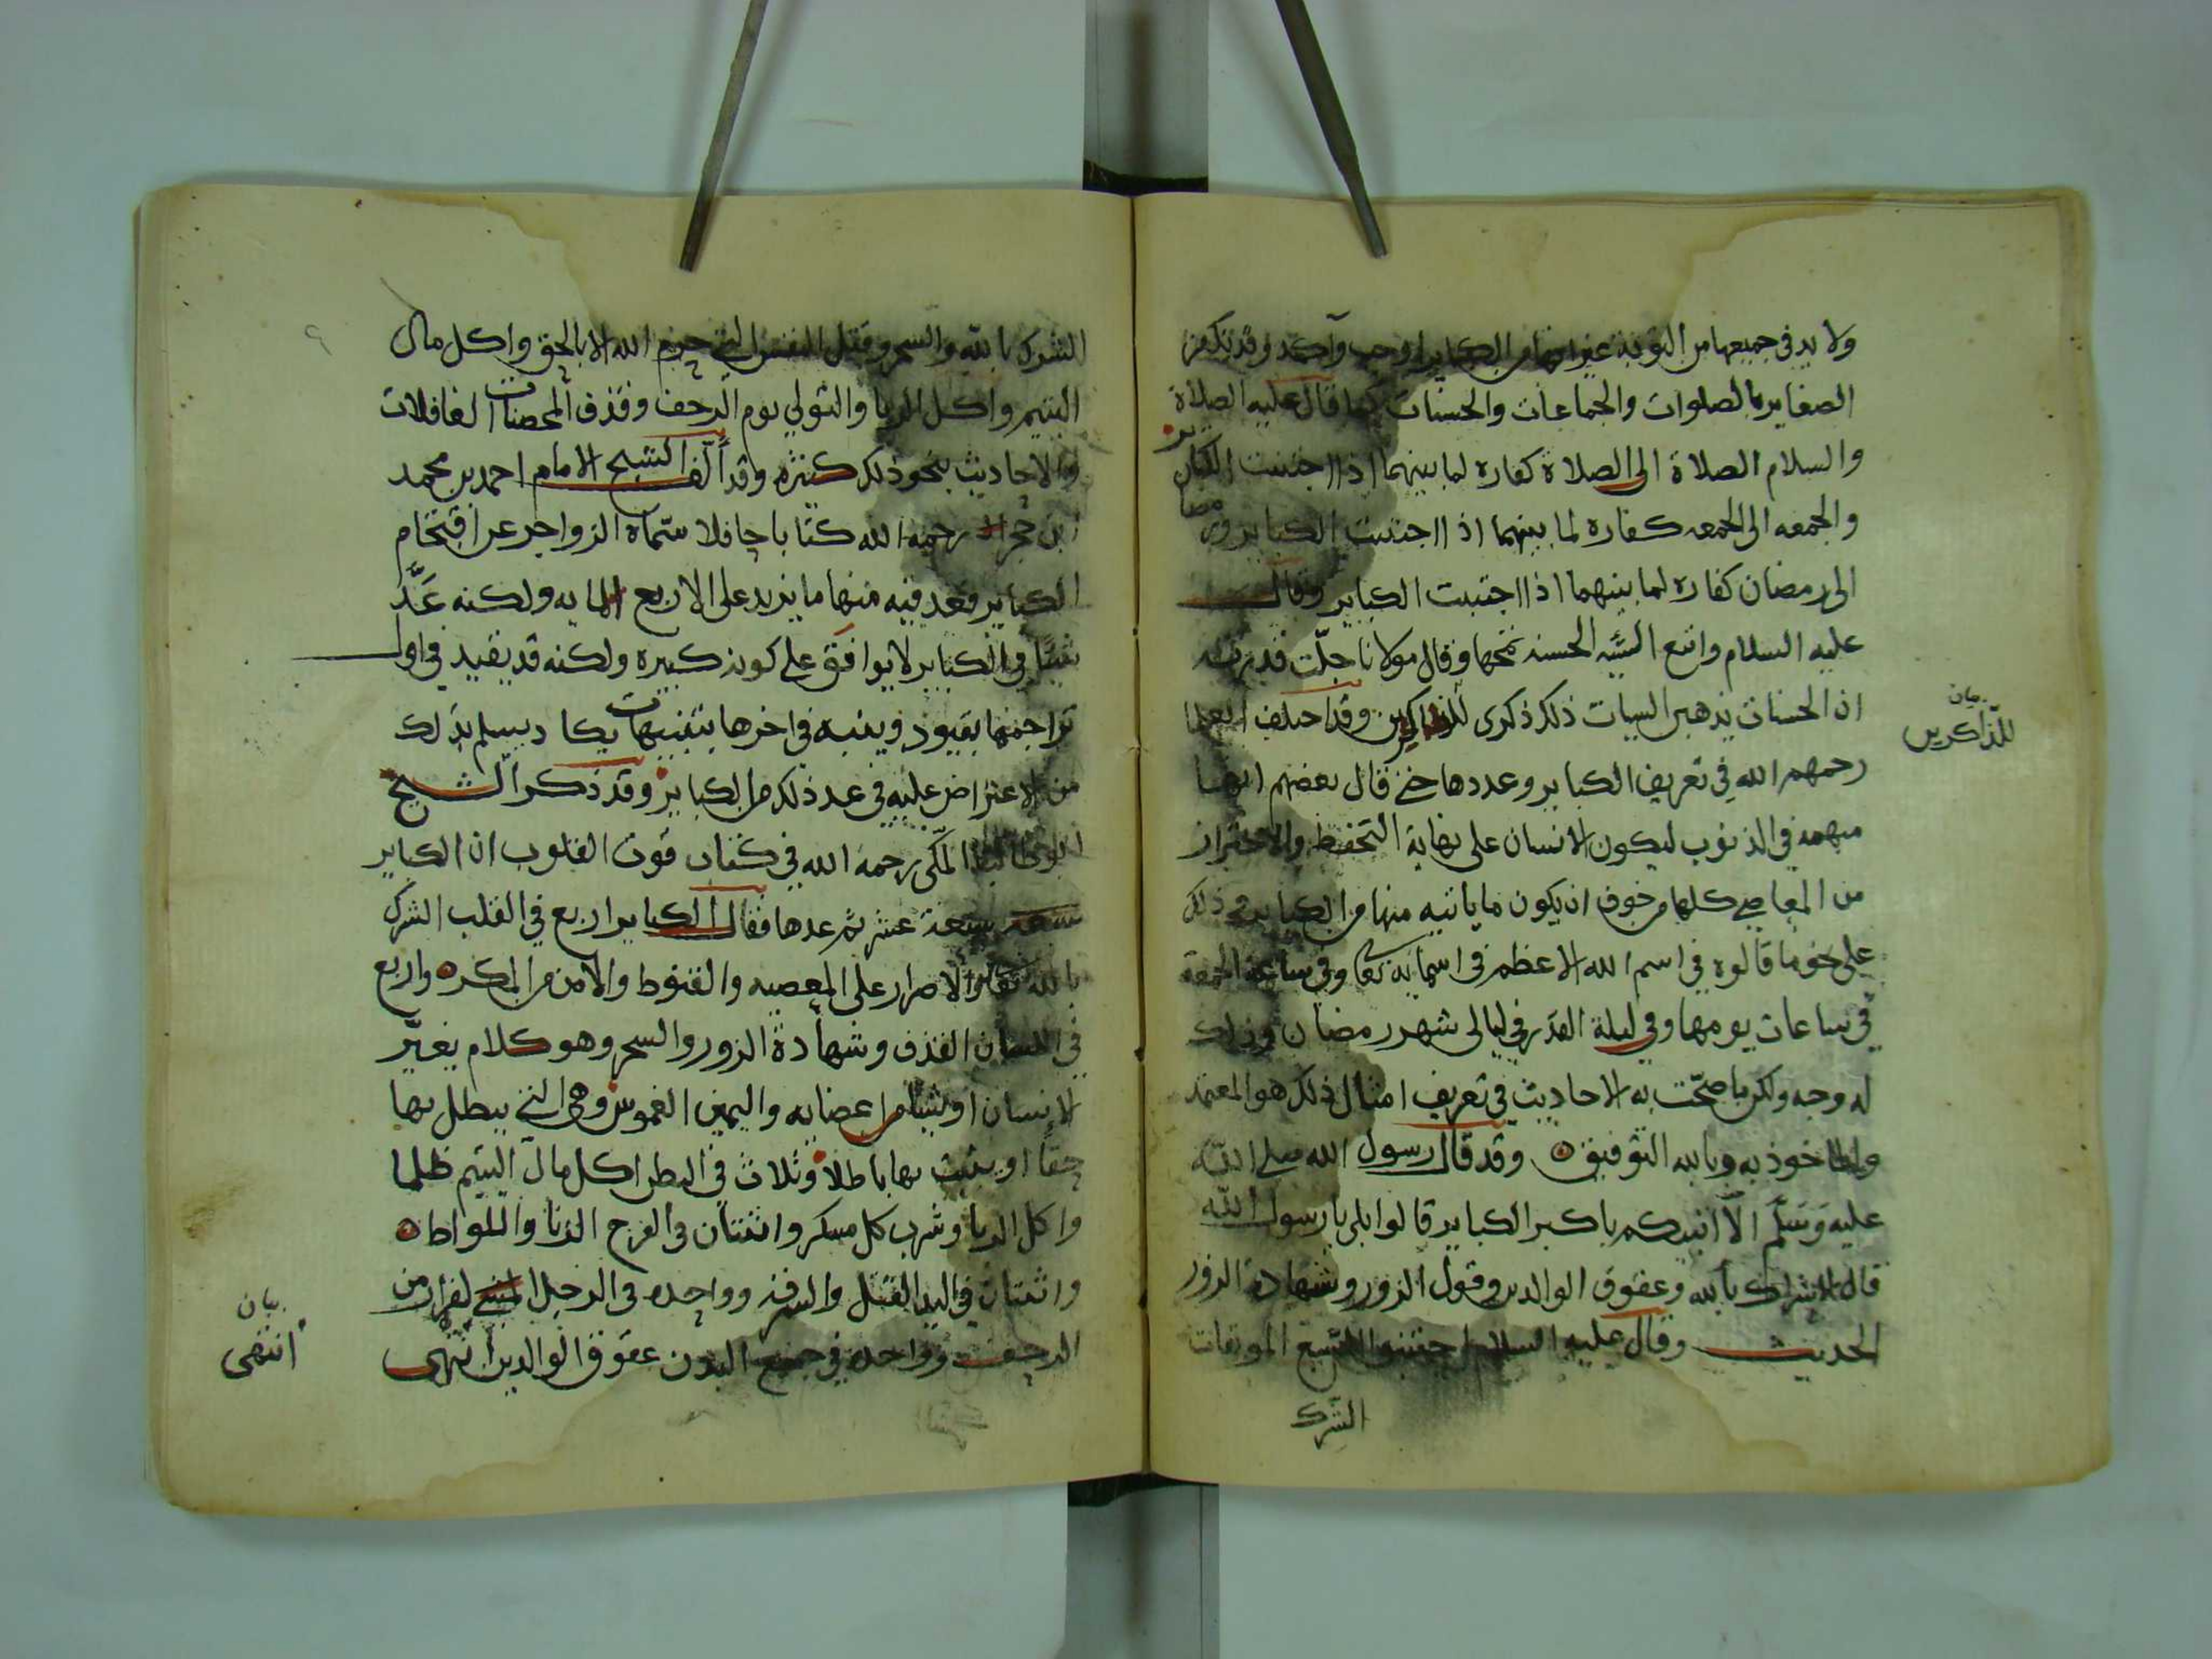 ولا بد في جميعها من التوبة غير انها من الكباير اوجب وآكد وقد تكفر
الصغاير بالصلوات والجماعات والحسنات كما قال عليه الصلاة
والسلام الصلاة الى الصلاة كفاره لما بينهما اذا اجتنبت الكباير
والجمعه الى الجمعه كفاره لما بينهما اذا اجتنبت الكباير ورمضان
الى رمضان كفاره لما بينهما اذا اجتنبت الكباير وقال
عليه السلام واتبع السيئه الحسنه تمحها وقال مولانا جلّت قدرته
ان الحسنات يذهبن السيات ذلك ذكرى للذاكرين وقد اختلف العلما
بيان
للذّاكرين
رحمهم الله في تعريف الكباير وعددها حتى قال بعضهم انها
مبهمه في الذنوب ليكون الانسان على نهاية التحفظ والاحتراز
من المعاصي كلها من خوف ان يكون ما ياتيه منها من الكباير في ذلك
على نحو ما قالوه في اسم الله الاعظم في اسمايه تعا وفي ساعة الجمعة
في ساعات يومها وفي ليلة القدر في ليالى شهر رمضان وذلك
له وجه ولكن ما صحّت به الاحاديث في تعريف امثال ذلك هو المعتمد
والماخوذ به وبالله التوفيق ه وقد قال رسول الله صلى الله
عليه وَسَلَّم الّا انبيكم باكبر الكباير قالوا بلى يا رسول الله
قال الاشراك بالله وعقوق الوالدين وقول الزور وشهادة الزور
الحديث وقال عليه السلام اجتنبوا السّبع الموبقات
الشرك
الشرك بالله والسحر وقتل النفس التي حرم الله الا بالحق واكل مال
اليتيم واكل الربا والتولي يوم الزحف وقذف المحصنات الغافلات
والاحاديث بنحو ذلك كثيره وقد ألّف الشيخ الامام احمد بن محمد
ابن حجر رحمه الله كتابا حافلا سمّاه الزواجر عن اقتحام
الكباير فعد فيه منها ما يزيد على الاربع المايه ولكنه عَدَّ
شيئًا في الكباير لا يوافق على كونه كبيره ولكنه قد يقيد في اول
تراجمها بقيود وينبه في اخرها بتنبيهات يكا د يسلم بذلك
من الاعتراض عليه في عد ذلك من الكباير وقد ذكر الشيخ
ابو طالب المكّى رحمه الله في كتاب قوت القلوب ان الكباير
سبعة عشر ثم عدها فقال الكباير اربع في القلب الشرك
بالله تعالى والاصرار على المعصيه والقنوط والامن من المكر ه واربع
في اللسان القذف وشهادة الزور والسحر وهو كلام يغيّر
الانسان او شيئا من اعضايه واليمين الغموس وهى التي يبطل بها
حقاً او يثبت بها باطلا وثلاث في البطن اكل مال اليتيم ظلما
واكل الربا وشرب كل مسكر واثنتان في الفرج الزنا واللواط ه
واثنتان في اليد القتل والسرقه وواحده في الرجل الفرار من
الزحف وواحدة في جميع البدن عقوق الوالدين انتهى
بيان
انتهى